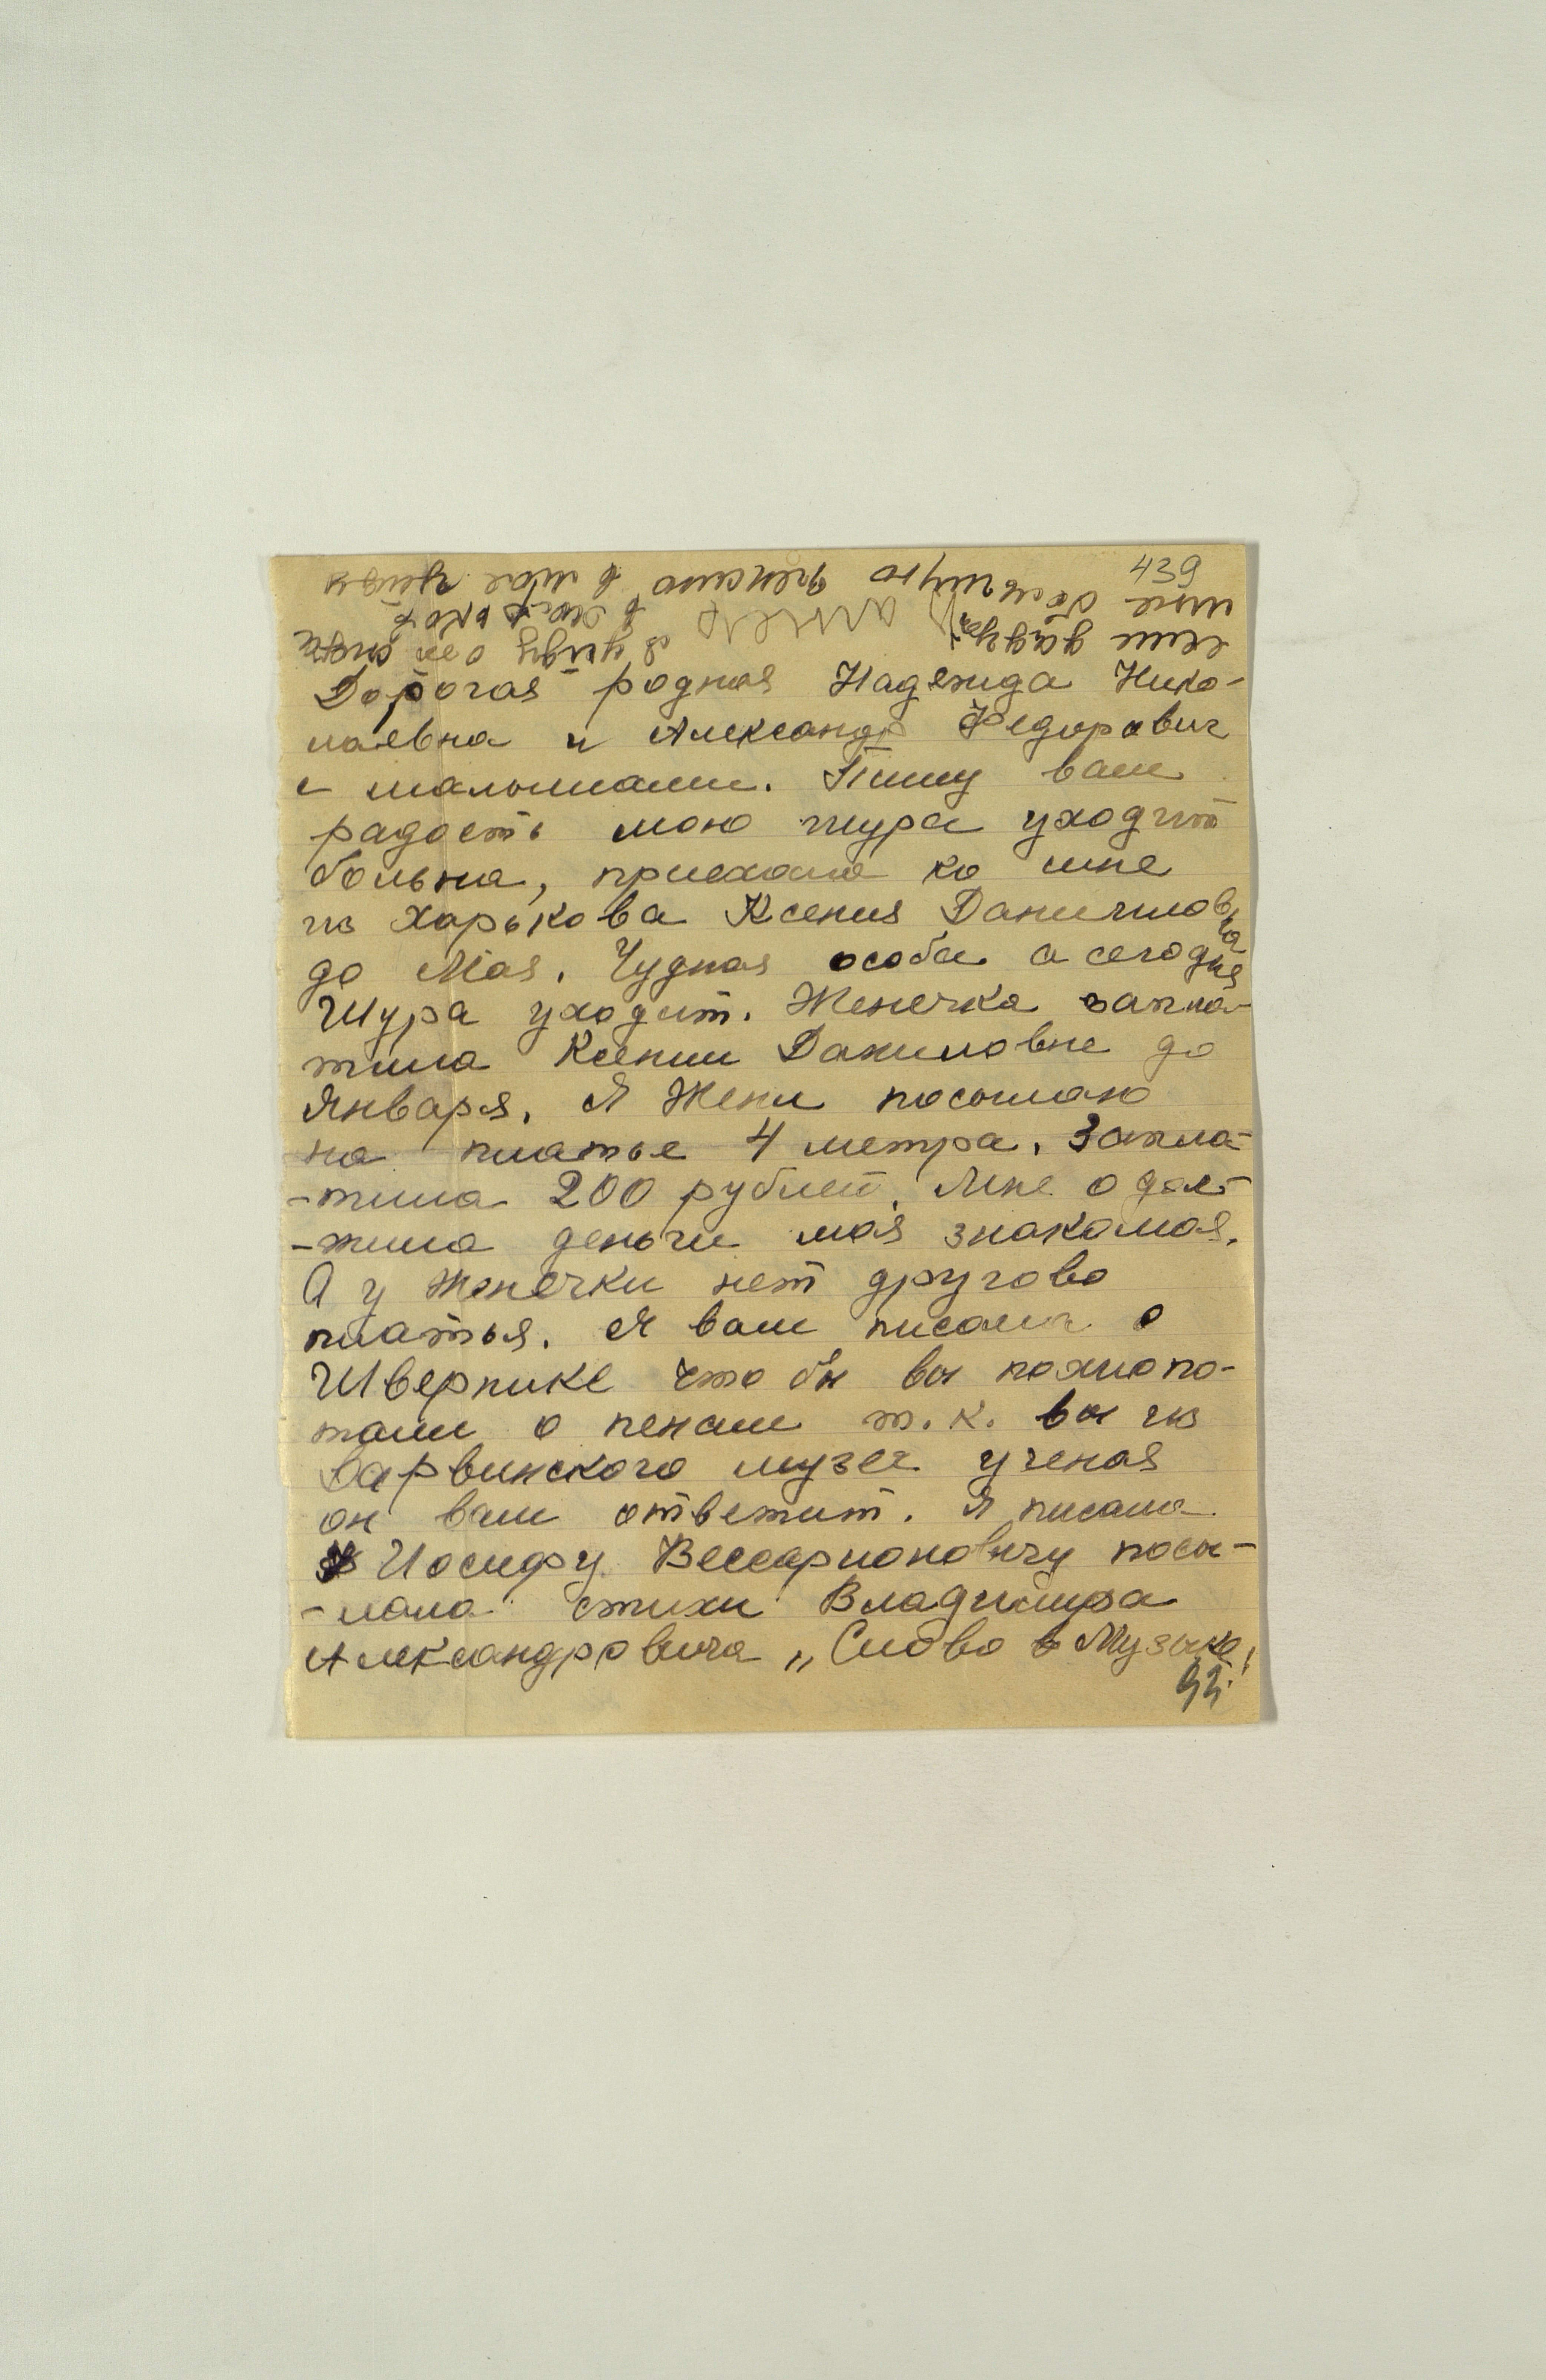 439
если дадут
мне большую пенсию в мае уеду
Дорогая родная Надежда Нико-
лаевна и Александр Федорович
с малышами. Пишу вам
радость мою шура уходит
больна, приехала ко мне
из Харькова Ксения Даниловна
до Мая. Чудная особа а сегодня
Шура уходит. Женечка запла-
тила Ксении Даниловне до
Января. Я Жени посылаю
на платье 4 метра. Запла-
-тила 200 рублей. Мне одол-
-жила деньги моя знакомая.
А у Женечки нет другово
платья. Я вам писала о
Швернике что бы вы похлопо-
тали о пенсии т.к. вы из
Дарвинского музея ученая
он вам ответит. Я писала
Иосифу Виссарионовичу посы-
-лала стихи Владимира
Александровича „Слово в Музыке"